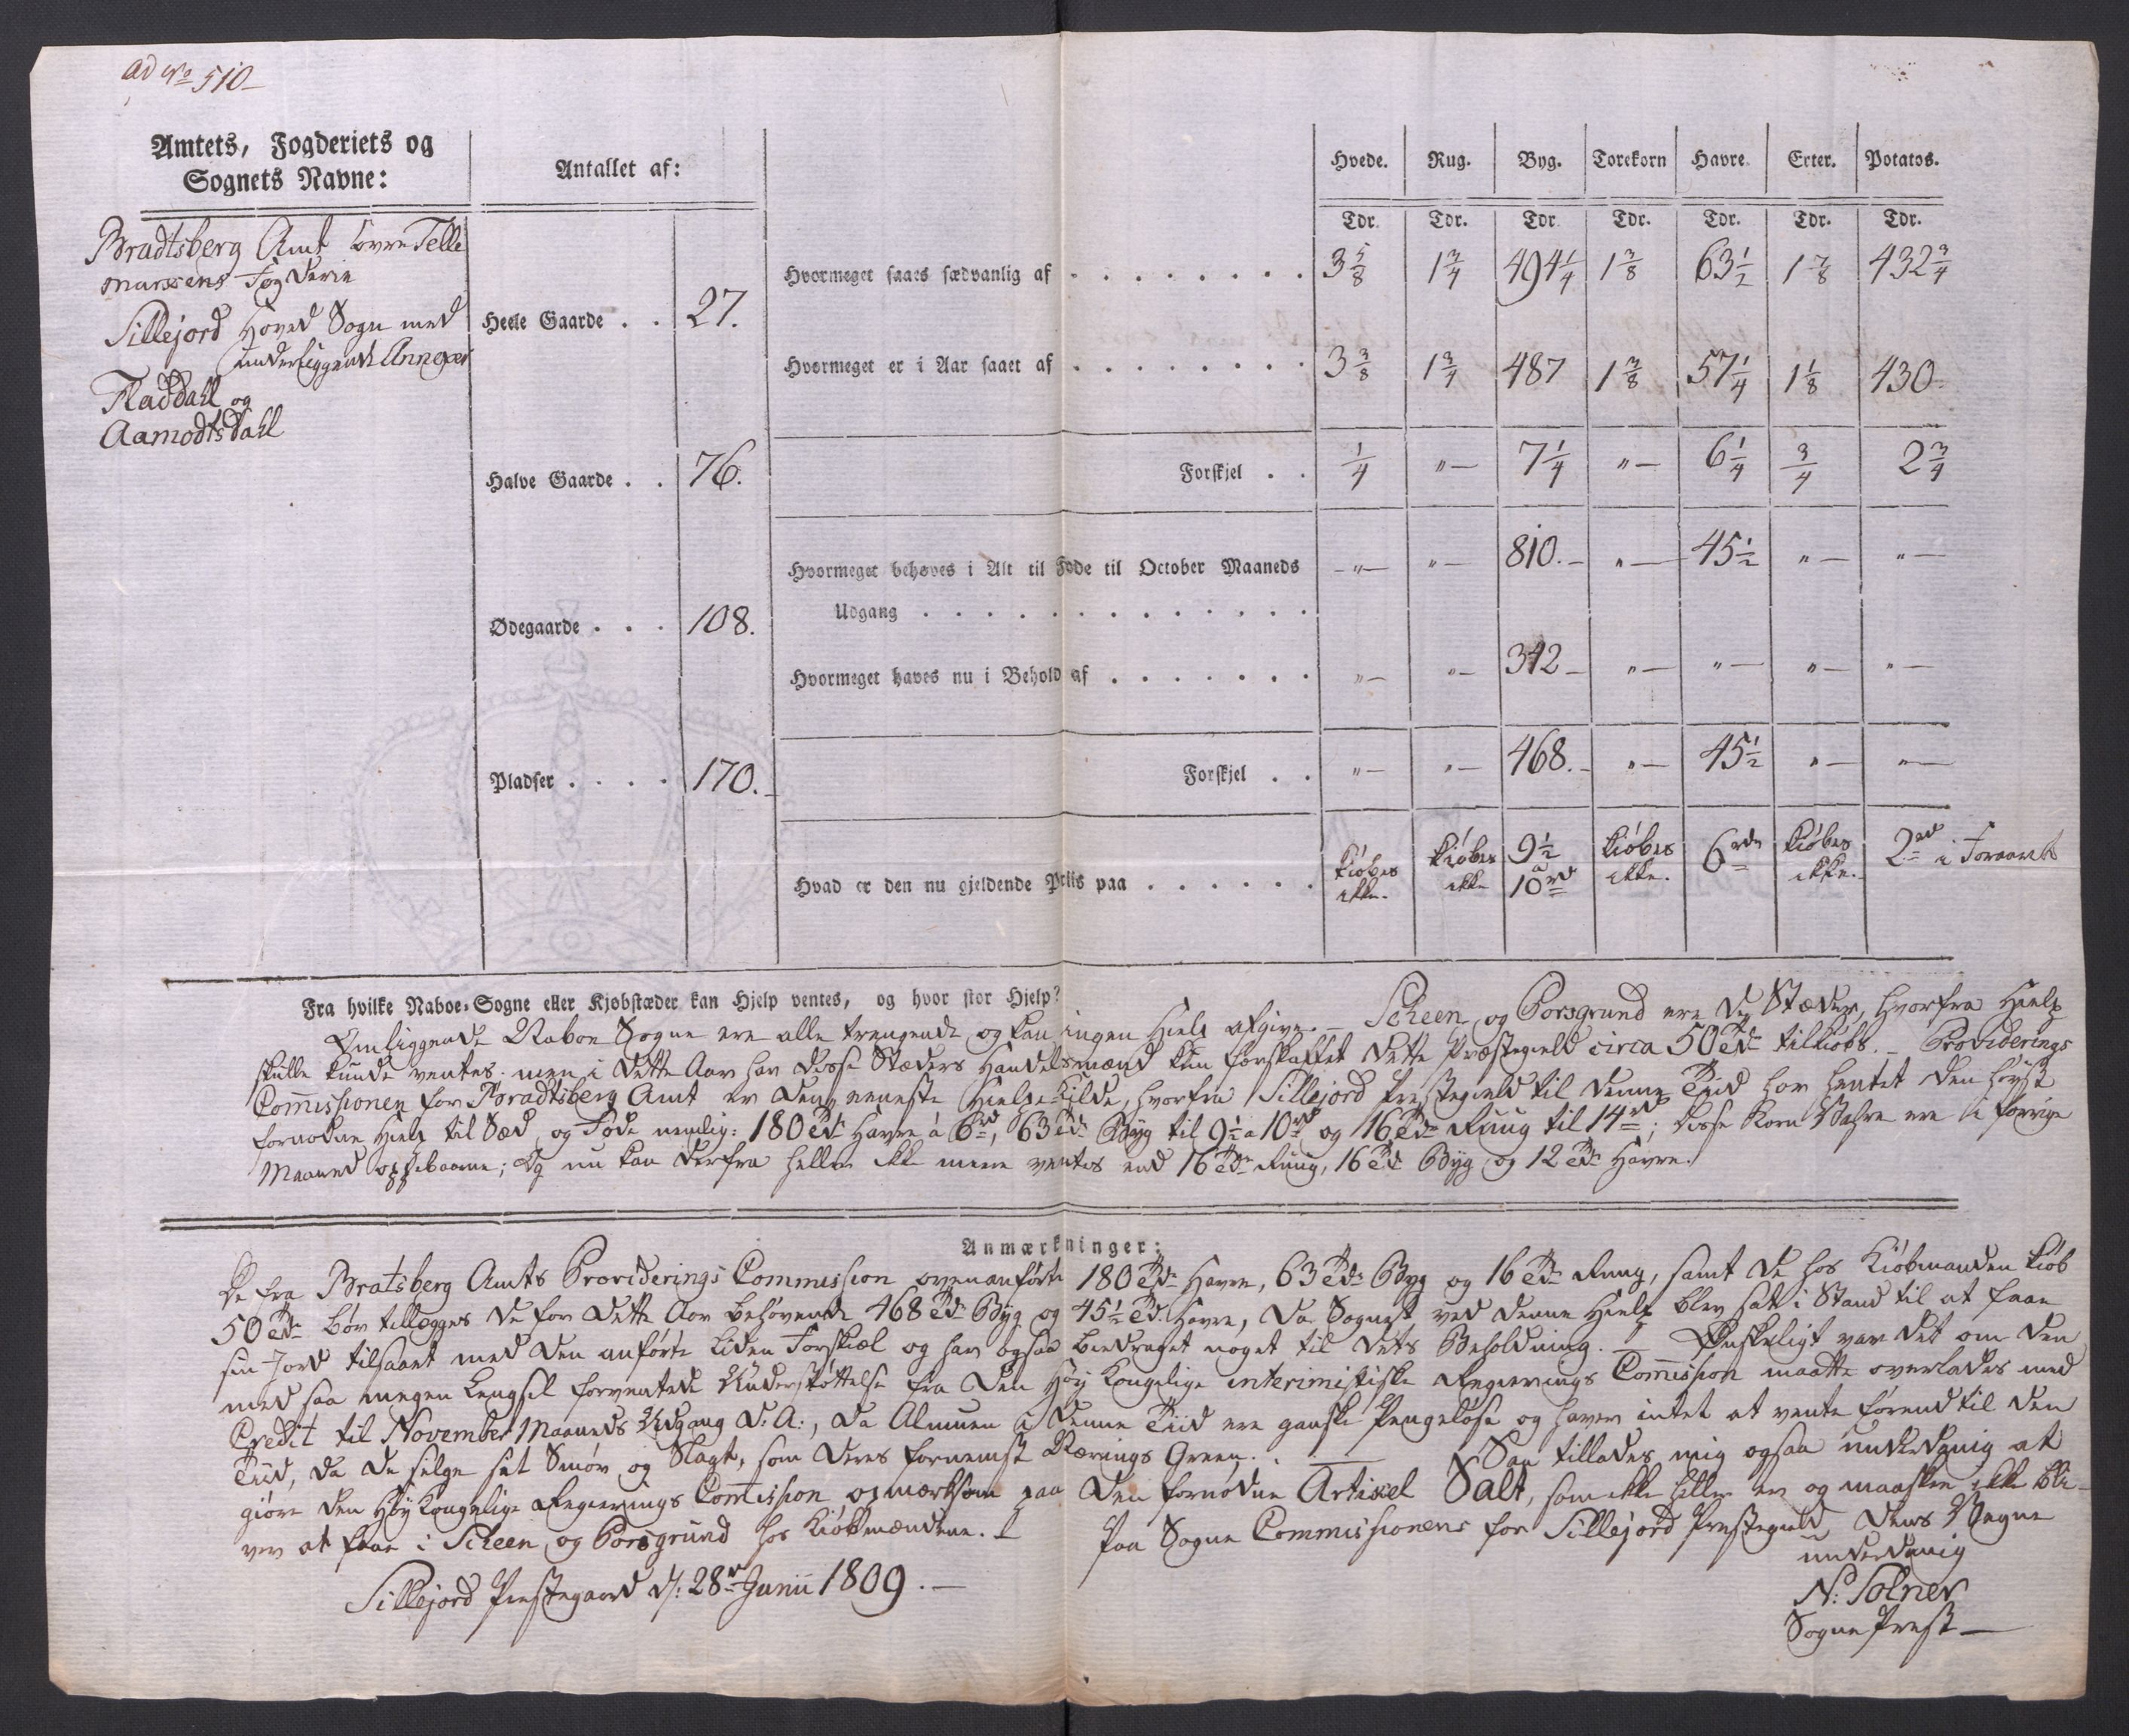 ad No 510
Amtets, Fogderiets og
Sognets Navne:
Antallet af:
Hvede. Rug. Byg. Torekorn Havre. Erter. Potatos.
Tdr. Tdr. Tdr. Tdr. Tdr. Tdr. Tdr.
Bradtsberg Amt øvre Telle
marckens Fogderie
Sillejord Hoved Sogn med
underliggende Annexer
Fladdahl og
Aamodtsdahl
Heele Gaarde . . 27.
Halve Gaarde . . 76.
Ødegaarde . . . 108.
Pladser . . . . 170.
Hvormeget saaes sædvanlig af . . . . . . . . 3 5/8 1 3/4 494 1/4 1 3/8 63 1/2 1 7/8 432 3/4
Hvormeget er i Aar saaet af . . . . . . . . 3 3/8 1 3/4 487 1 3/8 57 1/4 1 1/8 430
Forskjel . . 1/4 „ 7 1/4 „ 6 1/4 3/4 2 3/4
Hvormeget behøves i Alt til Føde til October Maaneds „ „ 810. „ 45 1/2 „ „
Udgang . . . . . . . . . . . . .
Hvormeget haves nu i Behold af . . . . . . . „ „ 342 „ „ „ „
Forskjel . . „ „ 468. „ 45 1/2 „ „
Hvad er den nu gjeldende Priis paa . . . . . . kiøbes ikke. kiøbes ikke 9 1/2 à 10 rd kiøbes ikke. 6 rd kiøbes ikke. 2 rd i Foraaret
Fra hvilke Naboe-Sogne eller Kjøbstæder kan Hjelp ventes, og hvor stor Hjelp?
Omliggende Naboe Sogne ere alle trængende og kan ingen Hielp afgive. – Scheen og Porsgrund ere de Stæder, hvorfra Hielp
skulle kunde ventes. men i dette Aar har disse Stæders Handelsmænd kun forskaffet dette Præstegield circa 50 Tdr tilkiøbs. – Providerings
Commissionen for Bradtsberg Amt er den eeneste Hielpekilde, hvorfra Sillejord Præstegield til denne Tiid har hentet den høyst
fornødne Hielp til Sæd og Føde nemlig: 180 Tdr Havre à 6 rd, 63 Tdr Byg til 9 1/2 a 10 rd og 16 Tdr Ruug til 14 rd; disse Korn Vahre ere i forrige
Maaned oppebaarne; Og nu kan derfra heller ikke meere ventes end 16 Tdr Ruug, 16 Tdr Byg og 12 Tdr Havre.
Anmærkninger:
De fra Bratsberg Amts Providerings Commission ovenanførte 180 Tdr Havre, 63 Tdr Byg og 16 Tdr Ruug, samt de hos Kiøbmanden kiøb
50 Tdr bør tillægges de for dette Aar behøvende 468 Tdr Byg og 45 1/2 Td. Havre, da Sognet ved denne Hielp blev sat i Stand til at faae
sin Jord tilsaaet med den anførte liden Forskiæl og har ogsaa bidraget noget til dets Beholdning. – Ønskeligt var det om den
med saa megen Længsel forventede Understøttelse fra den Høy Kongelige interimistiske Regierings Commission maatte overlades med
Credit til November Maaneds Udgang d: A:, da Almuen i denne Tiid ere ganske Pengeløse og haver intet at vente førend til den
Tiid, da de selge sit Smør og Slagt, som deres fornemste Nærings Green. – Saa tillades mig ogsaa underdanig at
giøre den Høy Kongelige Regierings Commission opmærksom paa den fornødne Artickel Salt, som ikke heller er og maaskee ikke bli-
ver at faae i Scheen og Porsgrund hos Kiøbmændene. –
Paa Sogne Commissionens for Sillejord Præstegield dens Vegne
underdanig
Sillejord Præstegaard d: 28de Junii 1809. –
N: Solner
Sogne Præst